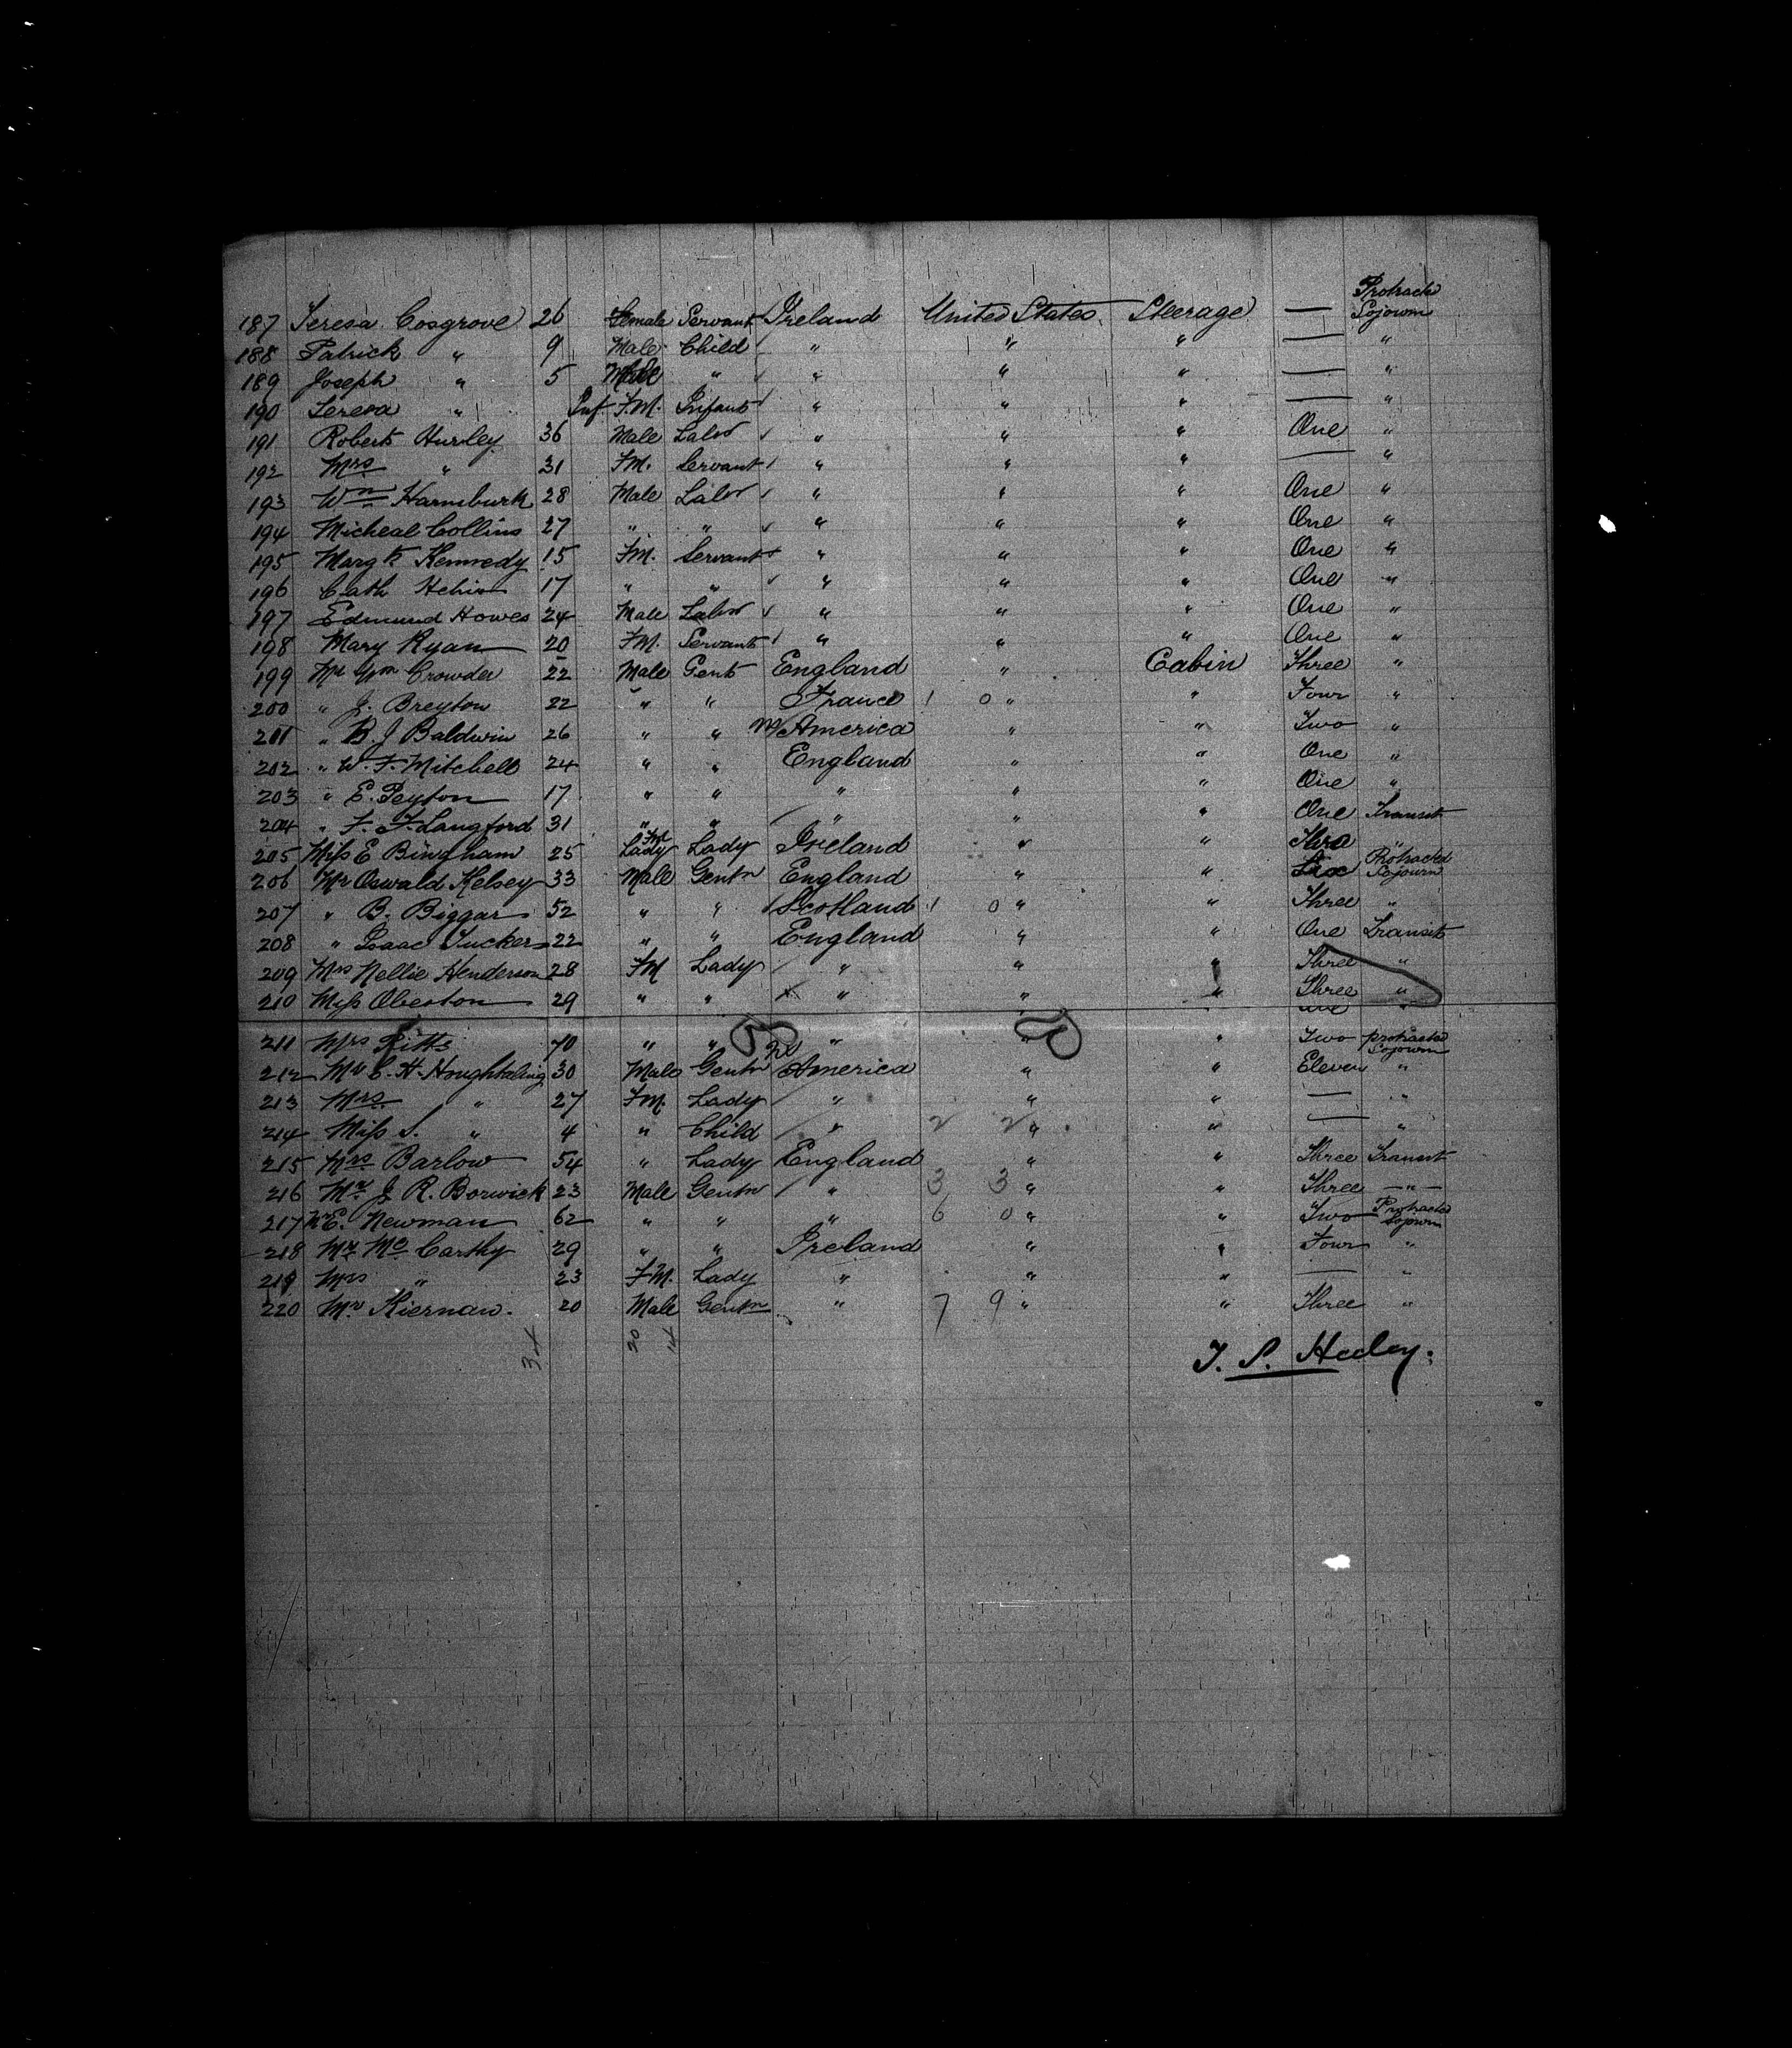 187 Teresa Cosgrove 26 Female Servant Ireland United States Steerage — Protracted Sojourn
188 Patrick " 9 Male Child " " " — "
189 Joseph " 5 Male " " " " — "
190 Teresa " Inf F.M. Infant " " " — "
191 Robert Hurley 36 Male Labr " " " One "
192 Mrs " 31 FM. Servant " " " — "
193 Wm 28 Male Labr " " " One "
194 Micheal Collins 27 " " " " " One "
195 Margt Kennedy 15 FM. Servant " " " One "
196 Cath 17 " " " " " One "
197 Edmund Howes 24 Male Labr " " " One "
198 Mary Ryan 20 FM. Servant " " " One "
199 Mr Wm Crowder 22 Male Gent England " Cabin Three "
200 " J. Breyton 22 " " France 1 0 " " Four "
201 " B. J Baldwin 26 " " America " " Two "
202 " W. F. Mitchell 24 " " England " " One "
203 " E. Peyton 17 " " " " " One "
204 " F. F. Langford 31 " " " " " One Transit
205 Miss E Bingham 25 Lady FM Lady Ireland " " "
206 Mr Oswald Kelsey 33 Male Gentn England " " Protracted Sojourn
207 " B. Biggar 52 " " Scotland 1 0 " " Three "
208 " Isaac Tucker 22 " " England " " One Transit
209 Mrs Nellie Henderson 28 FM Lady " " " Three "
210 Miss Oberton 29 " " " " " Three "
211 Mrs Pitts 70 " " " " " Two protracted Sojourn
212 Mr C. H. Houghtaling 30 Male Gentn America " " Eleven "
213 Mrs " 27 FM. Lady " " " — "
214 Miss S. " 4 " Child " 2 2 " " — "
215 Mrs Barlow 54 " Lady England " " Three Transit
216 Mr J R. Borwick 23 Male Gentn " 3 3 " " Three — " —
217 Mr E. Newman 62 " " " 6 0 " " Two Protracted Sojourn
218 Mr Mc Carthy 29 " " Ireland " " Four "
219 Mrs " 23 FM. Lady " " " — "
220 Mr Kiernan. 20 Male Gentn " 7 9 " " Three "
34 20 14
T. S. Heeley.